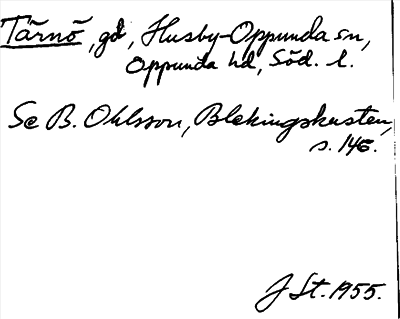 Tärnö, gd, Husby-Oppunda sn,
Oppunda hd, Söd. l.
Se B. Ohlsson, Blekingskusten,
s. 146.
J St. 1955.